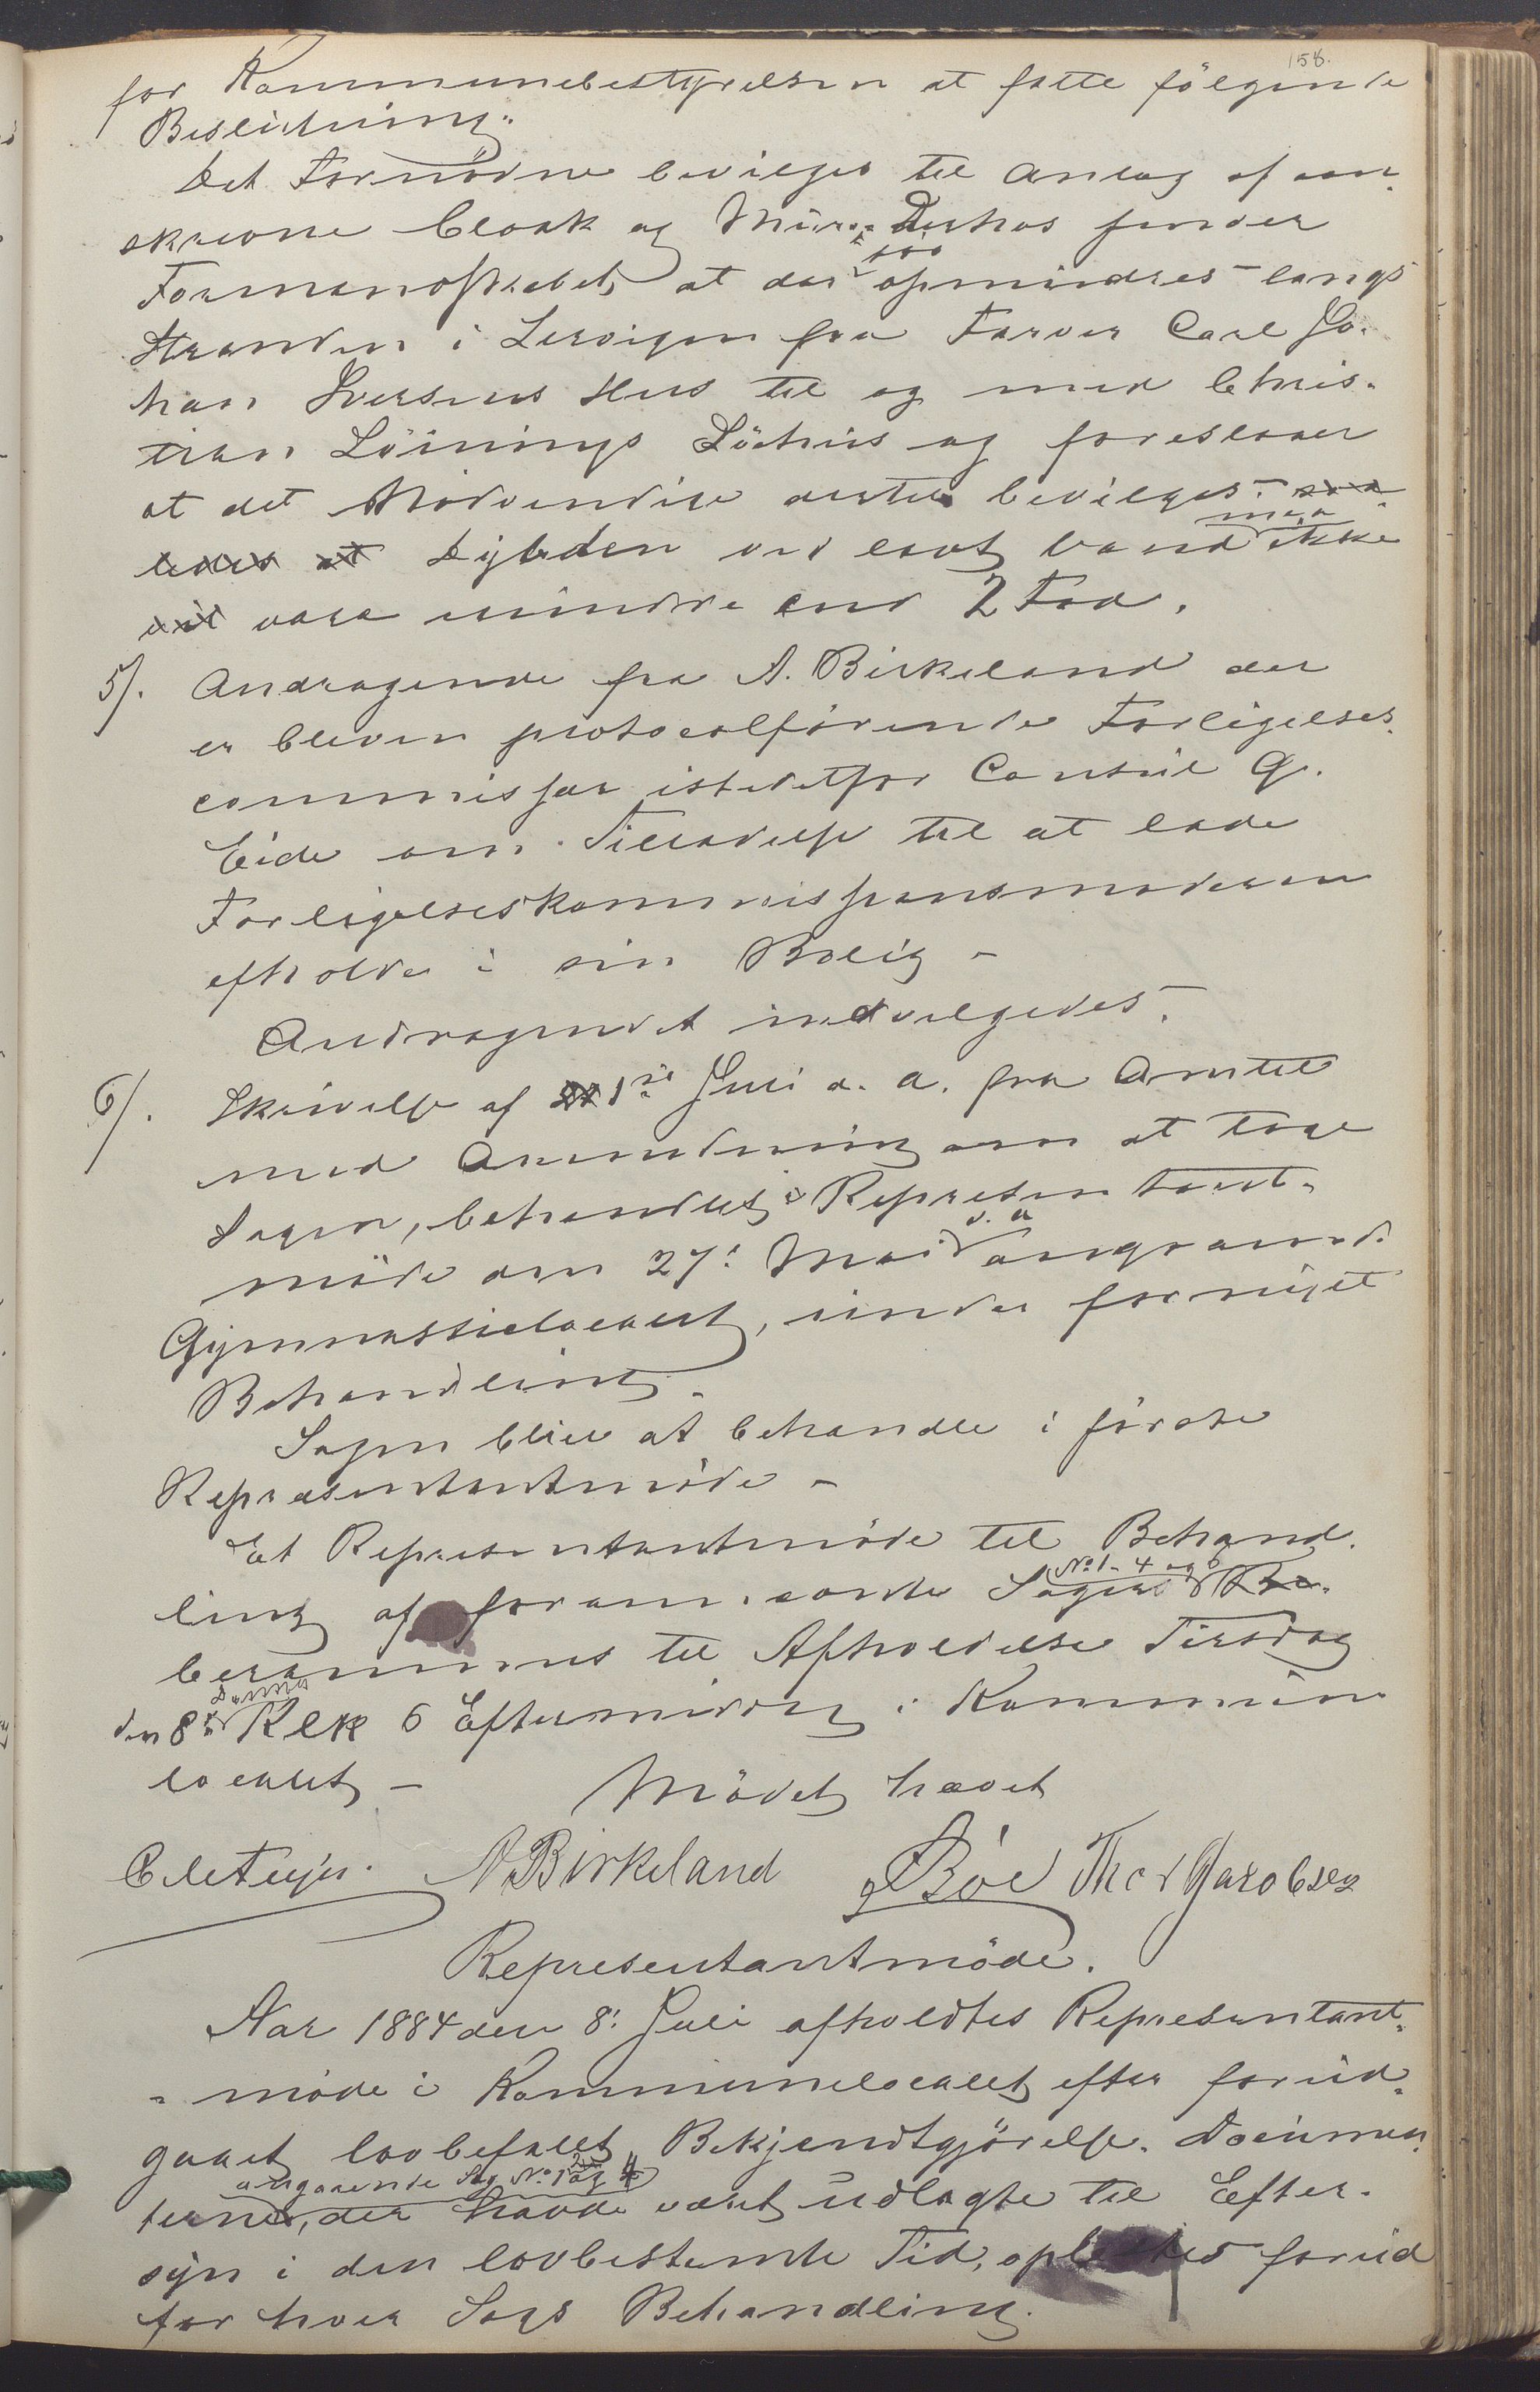 158.
for Kommunebestyrelsen at fatte fölgende
Beslutning.
Det Fornödne bevilges til Anlæg af an-
skrevne Cloak og Muur. Derhos finder
Formandskabet, at der bör opmudres langs
Stranden i Lervigen fra Farver Carl Jo-
han Iversens Hus til og med Chris-
tian Löinings Söehus og foreslaaer
at det Nödvendige dertil bevilges. saa
ledes at Dybden ved lavt Vand maa ikke
vil være mindre end 2 Fod.
5/. Andragende fra A. Birkeland der
er bleven protocolförende Forligelses-
commissær istedetfor Consul G.
Eide om Tilladelse til at lade
Forligelseskommissionsmøderne
afholde i sin Bolig –
Andragendet indvilgedes.
6/. Skrivelse af 1ste Juli d. A. fra Amtet
med Anmodning om at tage
Sagen, behandlet i Represen tant-
möde den 27: Mai d. A angaaende
Gymnastiklocalet, under fornyet
Behandling.
Sagen bliver at behandle i förste
Repræsentantmöde –
Et Represententmöde til Behand-
ling af foran. Sager No 1- 4 og 6 Be-
berammes til Afholdelse Tirsdag
den 8de Klk 6 Eftermiddag i Kommune
localet –
Mödet hævet
A Birkeland Böe Thor Jacobsen
Representantmöde.
Aar 1884 den 8: Juli afholdtes Representant-
- möde i Kommunelocalet efter forud-
gaaet lovbefalet Bekjendtgjörelse. Documen-
terne, angaaende Sag No 1 og 4 der havde været udlagte til Efter-
syn i den lovbestemte Tid, oplæstes forud
for hver Sags Behandling.